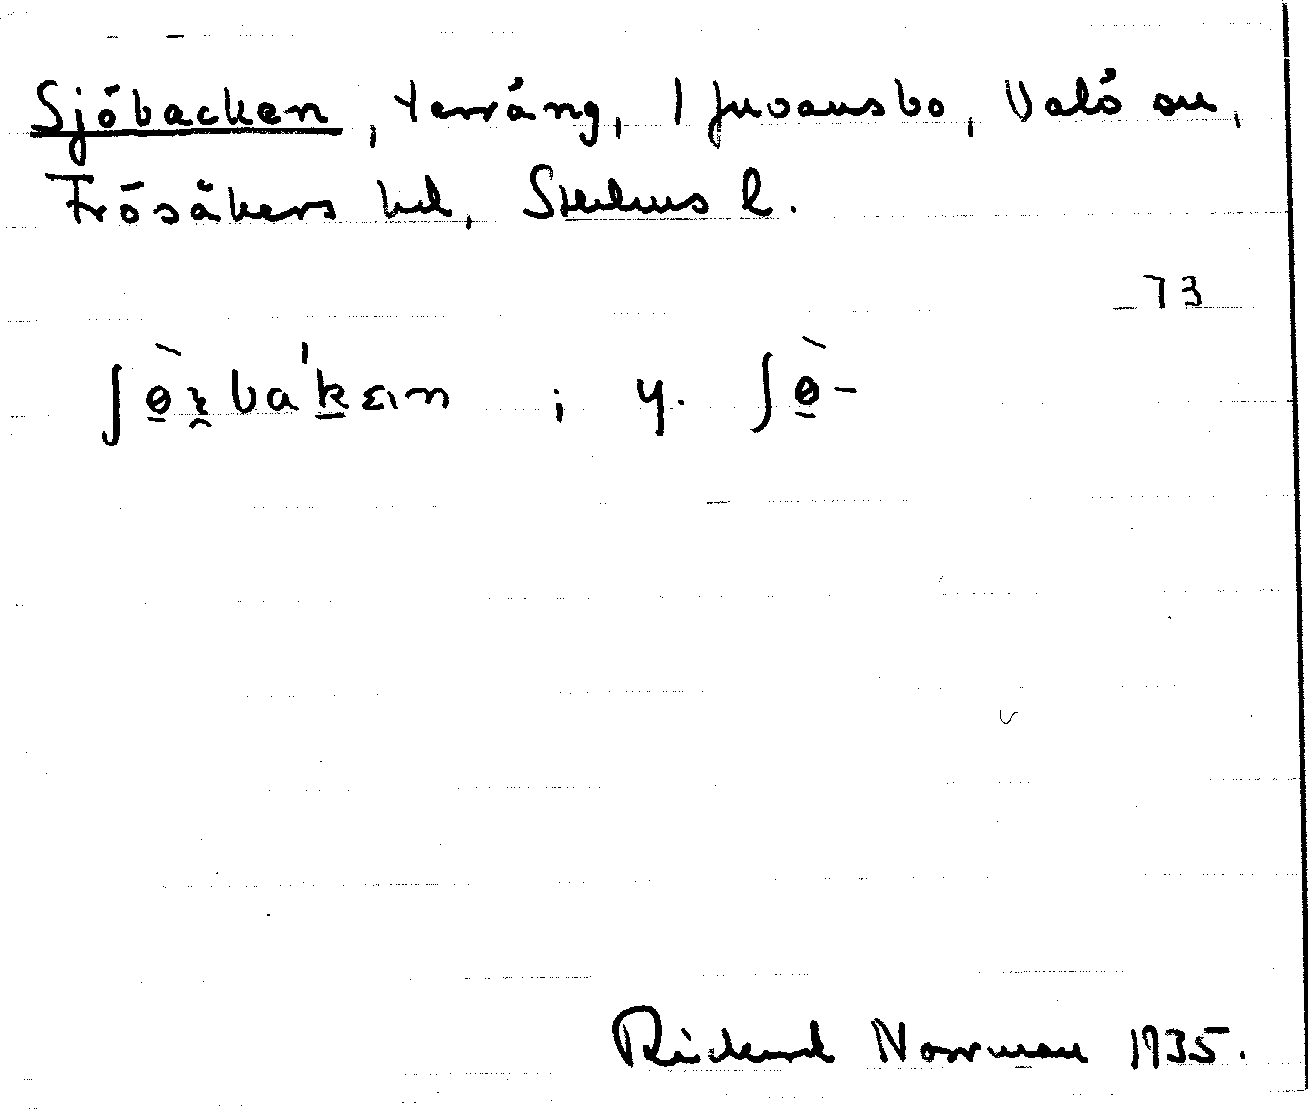 Sjöbacken, terräng, Ijuvansbo, Valö sn,
Frösåkers hd, Sthlms l.
73
; y.
Rickard Norrman 1935.